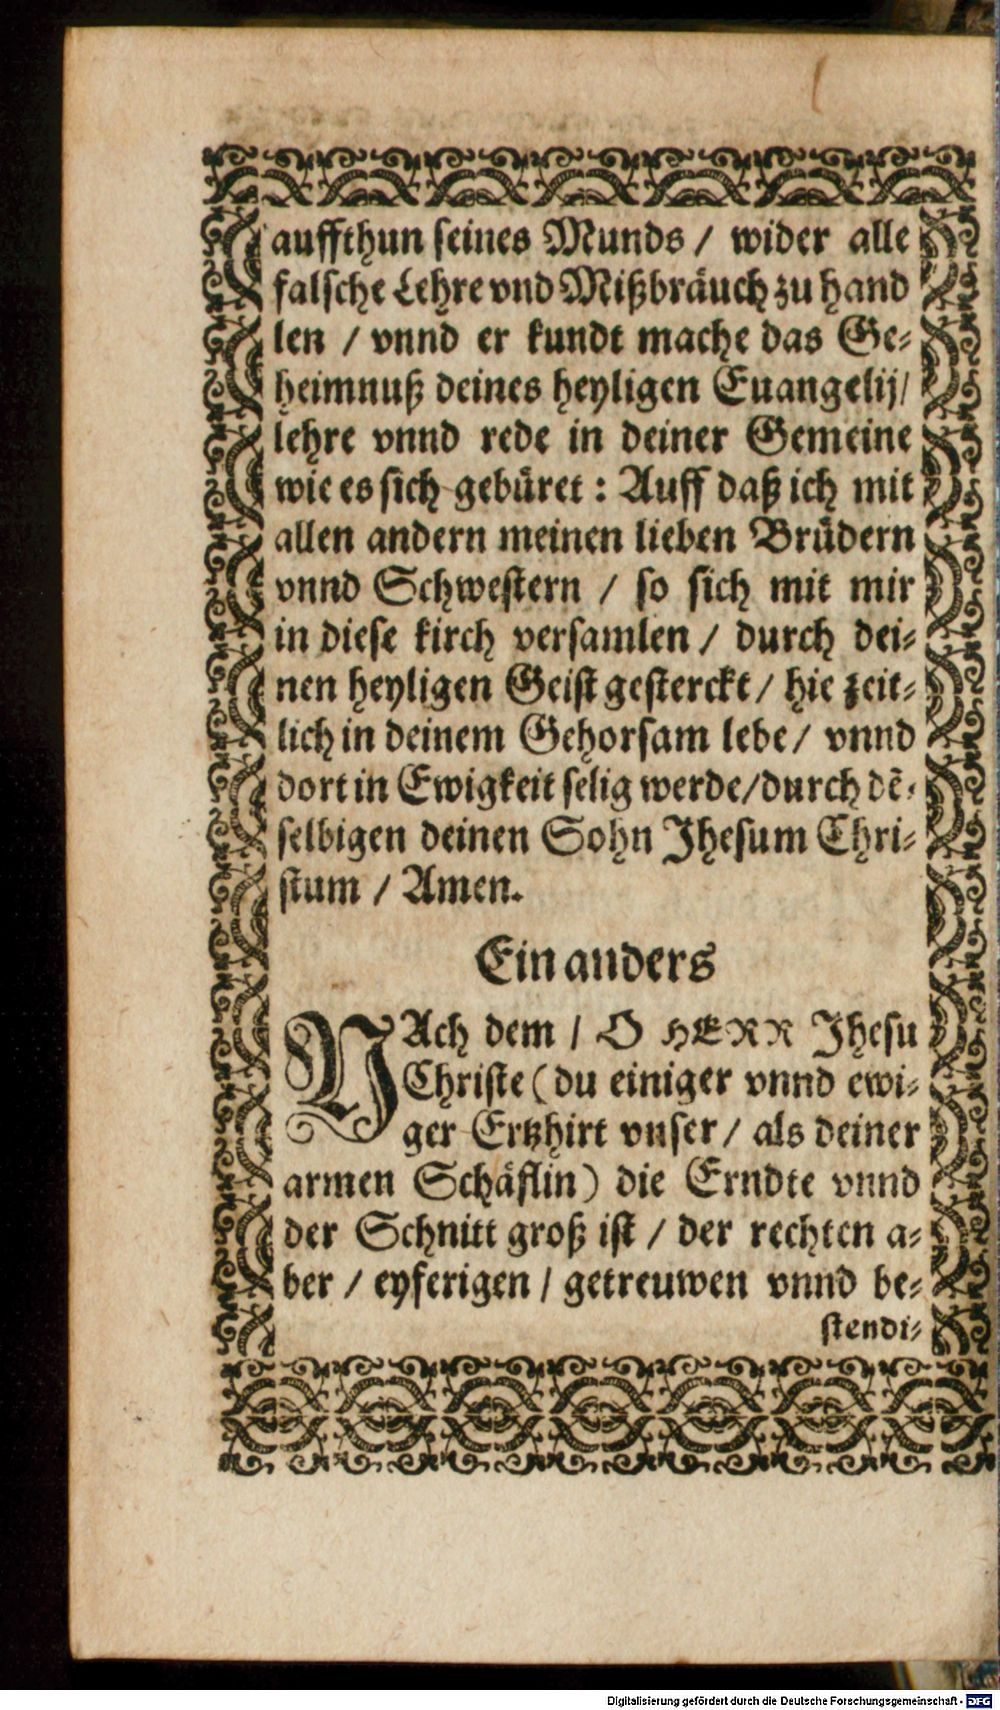 auffthun seines Munds / wider alle
falsche Lehre vnd Mißbräuch zu hand
len / vnnd er kundt mache das Ge-
heimnuß deines heyligen Euangelij/
lehre vnnd rede in deiner Gemeine
wie es sich gebüret : Auff daß ich mit
allen andern meinen lieben Brüdern
vnnd Schwestern / so sich mit mir
in diese kirch versamlen / durch dei-
nen heyligen Geist gesterckt / hie zeit-
lich in deinem Gehorsam lebe / vnnd
dort in Ewigkeit selig werde/durch dē-
selbigen deinen Sohn Jhesum Chri-
stum / Amen.
Ein anders
NAch dem / O HERR Jhesu
Christe (du einiger vnnd ewi-
ger Ertzhirt vnser / als deiner
armen Schäflin) die Erndte vnnd
der Schnitt groß ist / der rechten a-
ber / eyferigen / getreuwen vnnd be-
stendi-
Digitalisierung gefördert durch die Deutsche Forschungsgemeinschaft - DFG